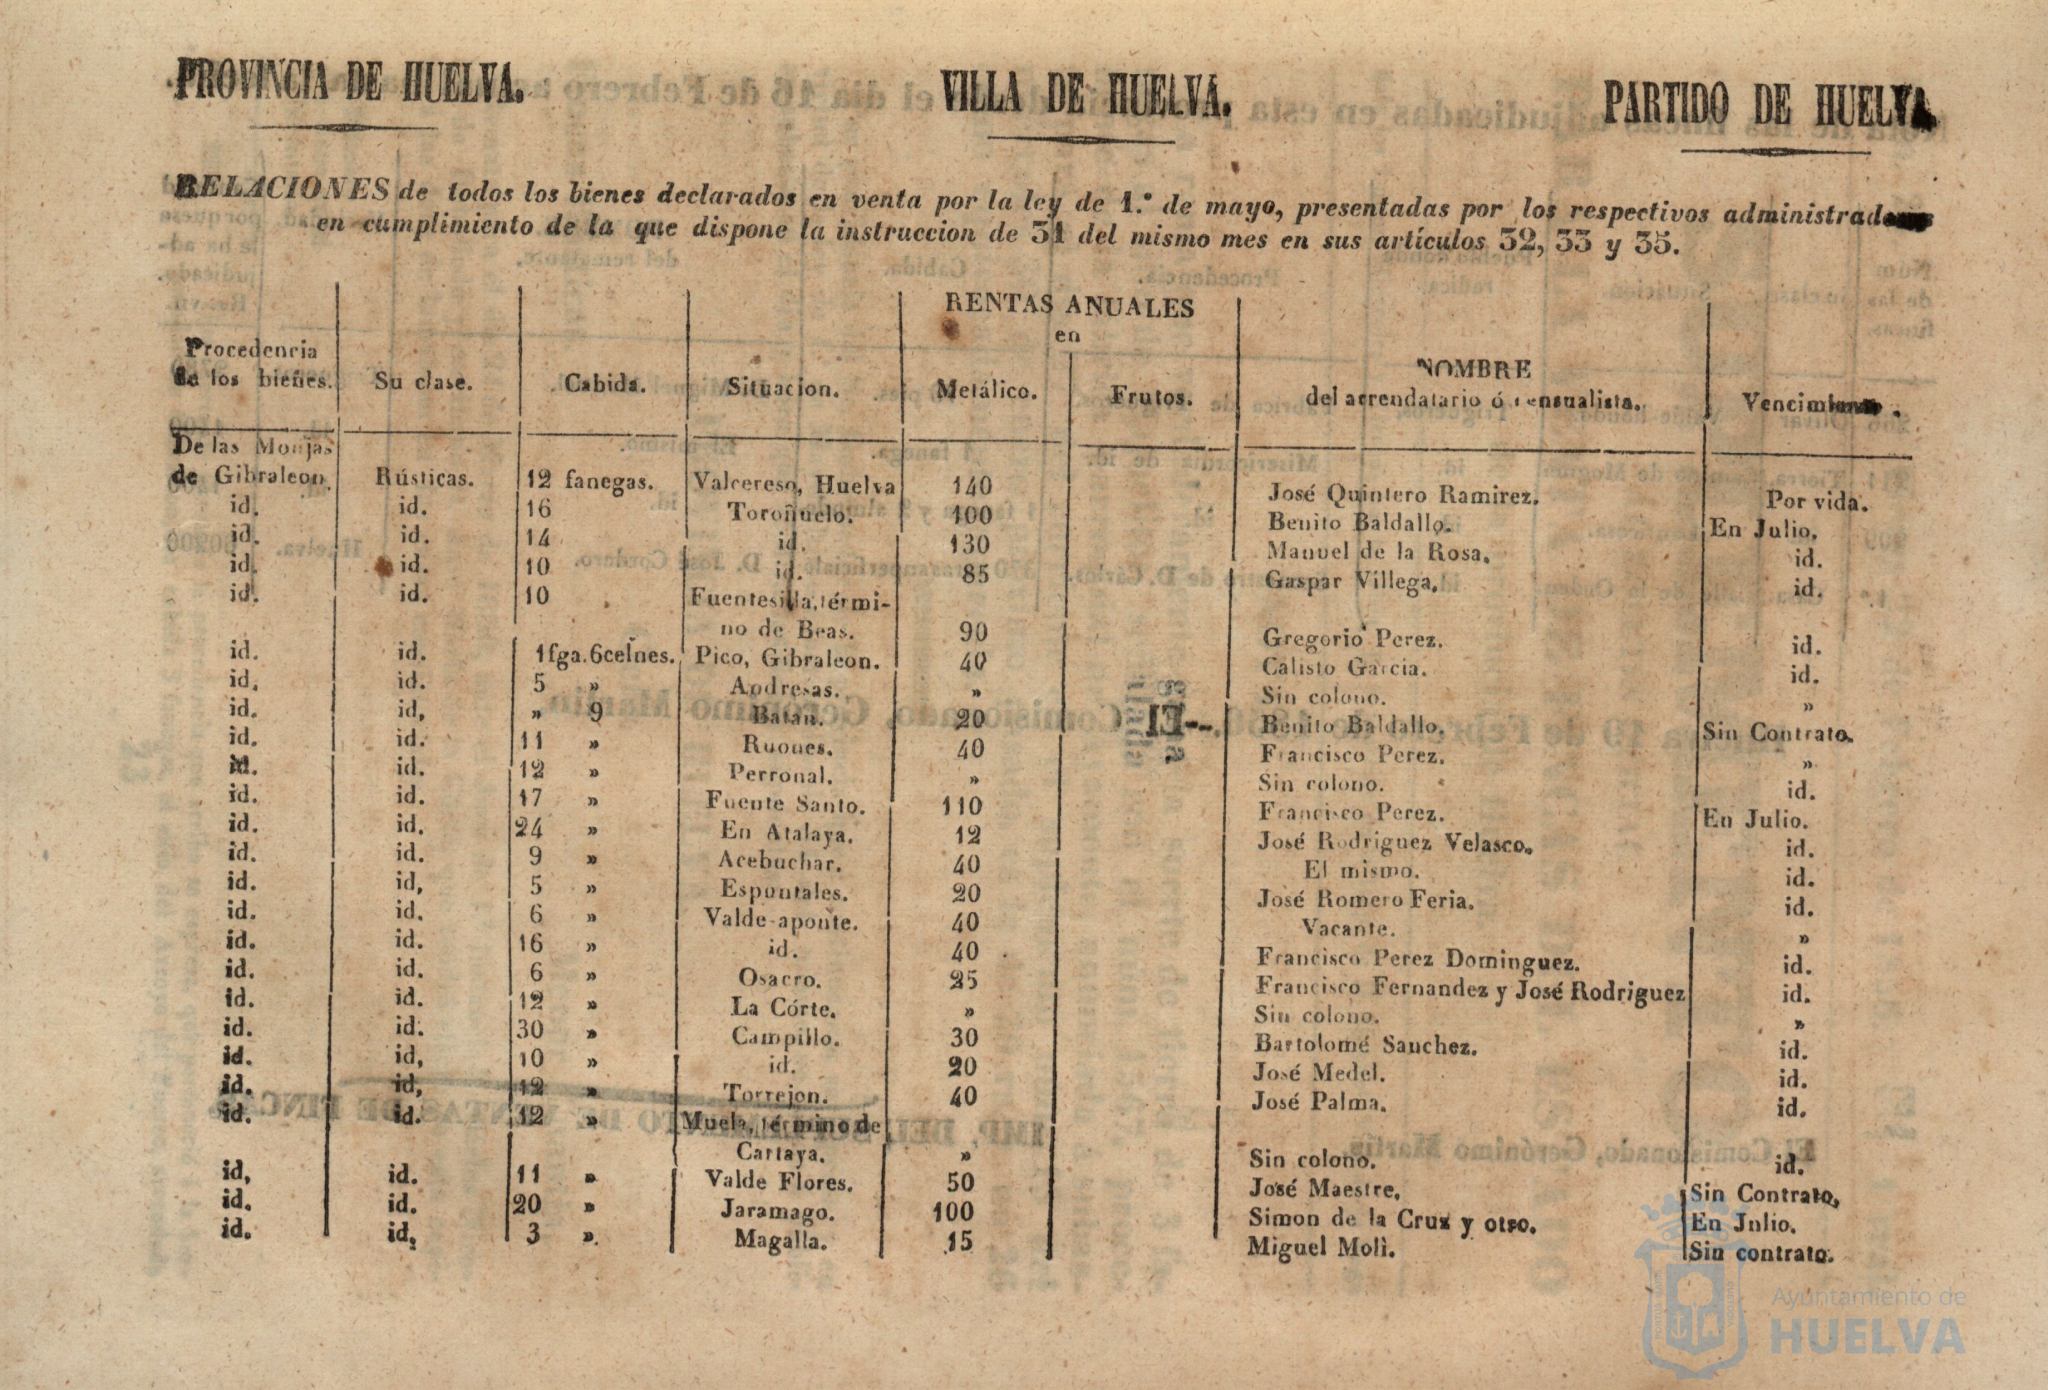 PROVINCIA DE HUELVA. VILLA DE HUELVA. PARTIDO DE HUELVA
RELACIONES de todos los bienes declarados en venta por la ley de 1.º de mayo, presentadas por los respectivos administradores
en cumplimiento de la que dispone la instruccion de 31 del mismo mes en sus artículos 32, 33 y 35.
RENTAS ANUALES
en
Procedencia
de los bienes. Su clase. Cabida. Situacion. Metálico. Frutos. NOMBRE
del arrendatario ó censualista. Vencimiento.
De las Monjas
de Gibraleon. Rústicas. 12 fanegas. Valcereso, Huelva 140 José Quintero Ramirez. Por vida.
id. id. 16 Toroñuelo. 100 Benito Baldallo. En Julio.
id. id. 14 id. 130 Manuel de la Rosa. id.
id. id. 10 id. 85 Gaspar Villega. id.
id. id. 10 Fuentesilla, térmi-
no de Beas. 90 Gregorio Perez. id.
id. id. 1fga. 6celnes. Pico, Gibraleon. 40 Calisto Garcia. id.
id. id. 5 » Andresas. » Sin colono. »
id. id. » 9 Batan. 20 Benito Baldallo. Sin Contrato.
id. id. 11 » Ruones. 40 Francisco Perez. »
id. id. 12 » Perronal. » Sin colono. id.
id. id. 17 » Fuente Santo. 110 Francisco Perez. En Julio.
id. id. 24 » En Atalaya. 12 José Rodriguez Velasco. id.
id. id. 9 » Acebuchar. 40 El mismo. id.
id. id. 5 » Espontales. 20 José Romero Feria. id.
id. id. 6 » Valde-aponte. 40 Vacante. »
id. id. 16 » id. 40 Francisco Perez Dominguez. id.
id. id. 6 » Osacro. 25 Francisco Fernandez y José Rodriguez id.
id. id. 12 » La Córte. » Sin colono. »
id. id. 30 » Campillo. 30 Bartolomé Sanchez. id.
id. id. 10 » id. 20 José Medel. id.
id. id. 12 » Torrejon. 40 José Palma. id.
id. id. 12 » Muela, término de
Cartaya. » Sin colono. id.
id. id. 11 » Valde Flores. 50 José Maestre. Sin Contrato.
id. id. 20 » Jaramago. 100 Simon de la Cruz y otro. En Julio.
id. id. 3 » Magalla. 15 Miguel Molì. Sin contrato.
Ayuntamiento de
HUELVA